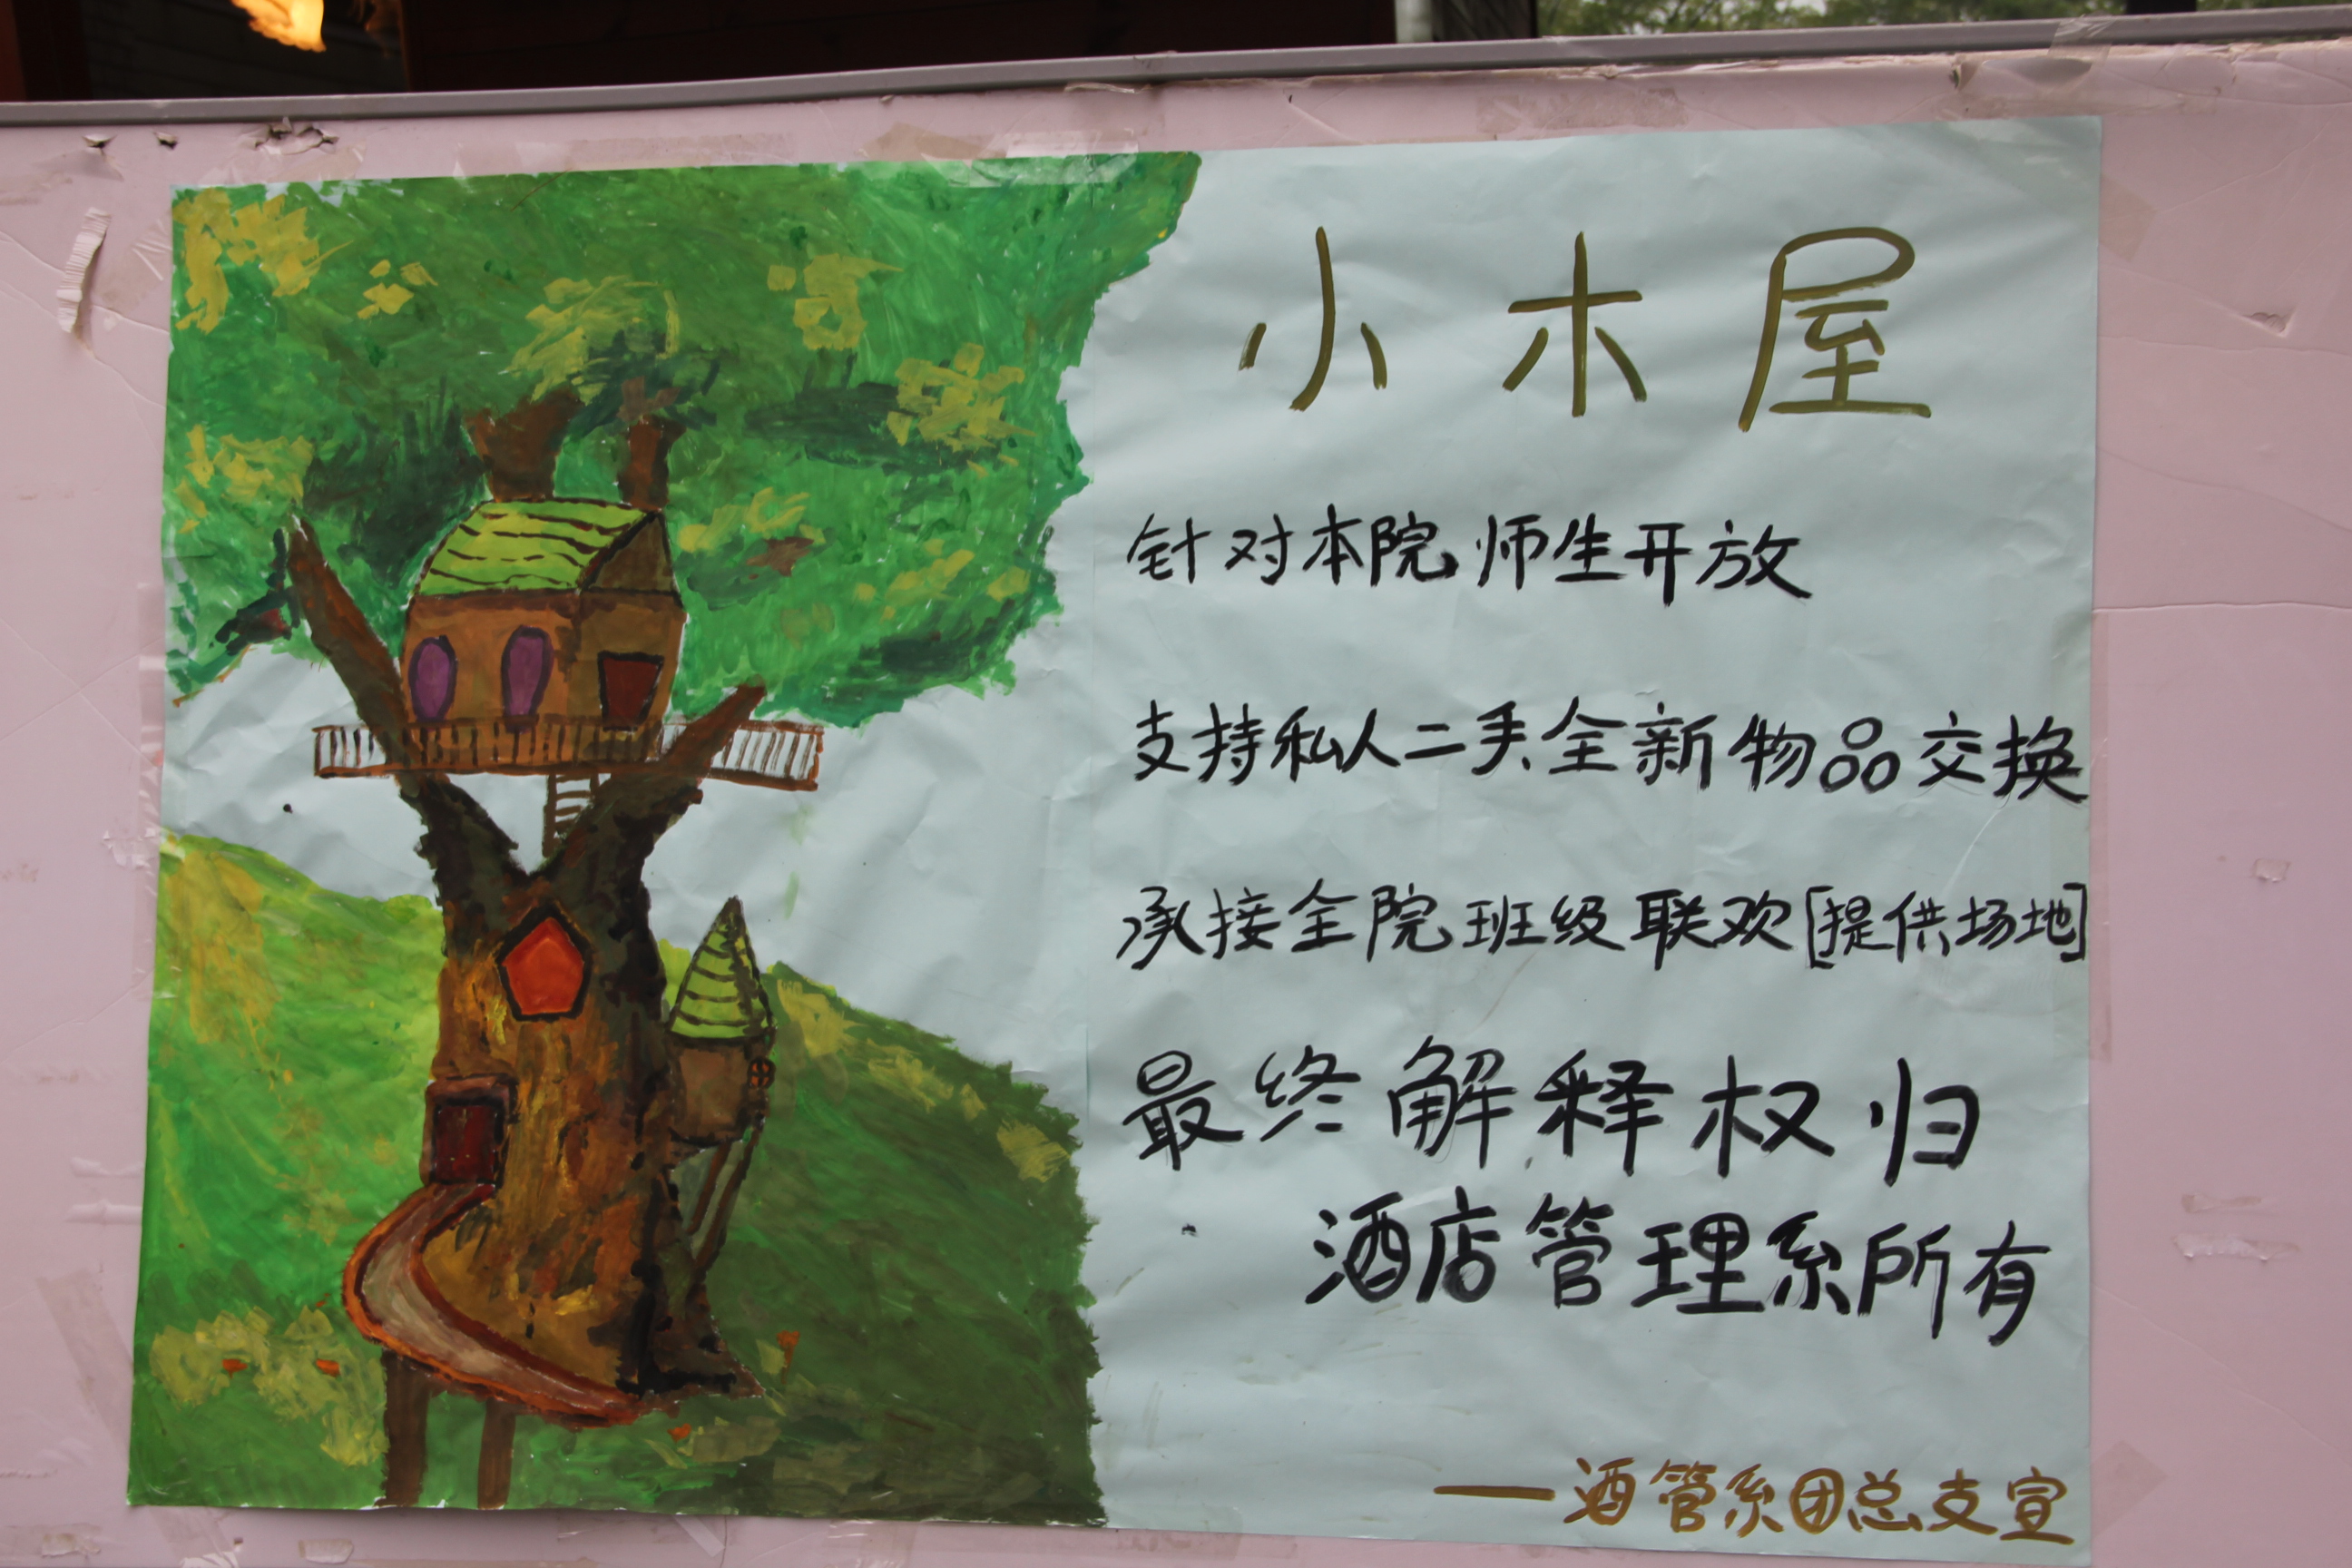 小木屋
针对本院师生开放
支持私人二手全新物品交换
承接全院班级联欢[提供场地]
最终解释权归
酒店管理系所有
——酒管系团总支宣